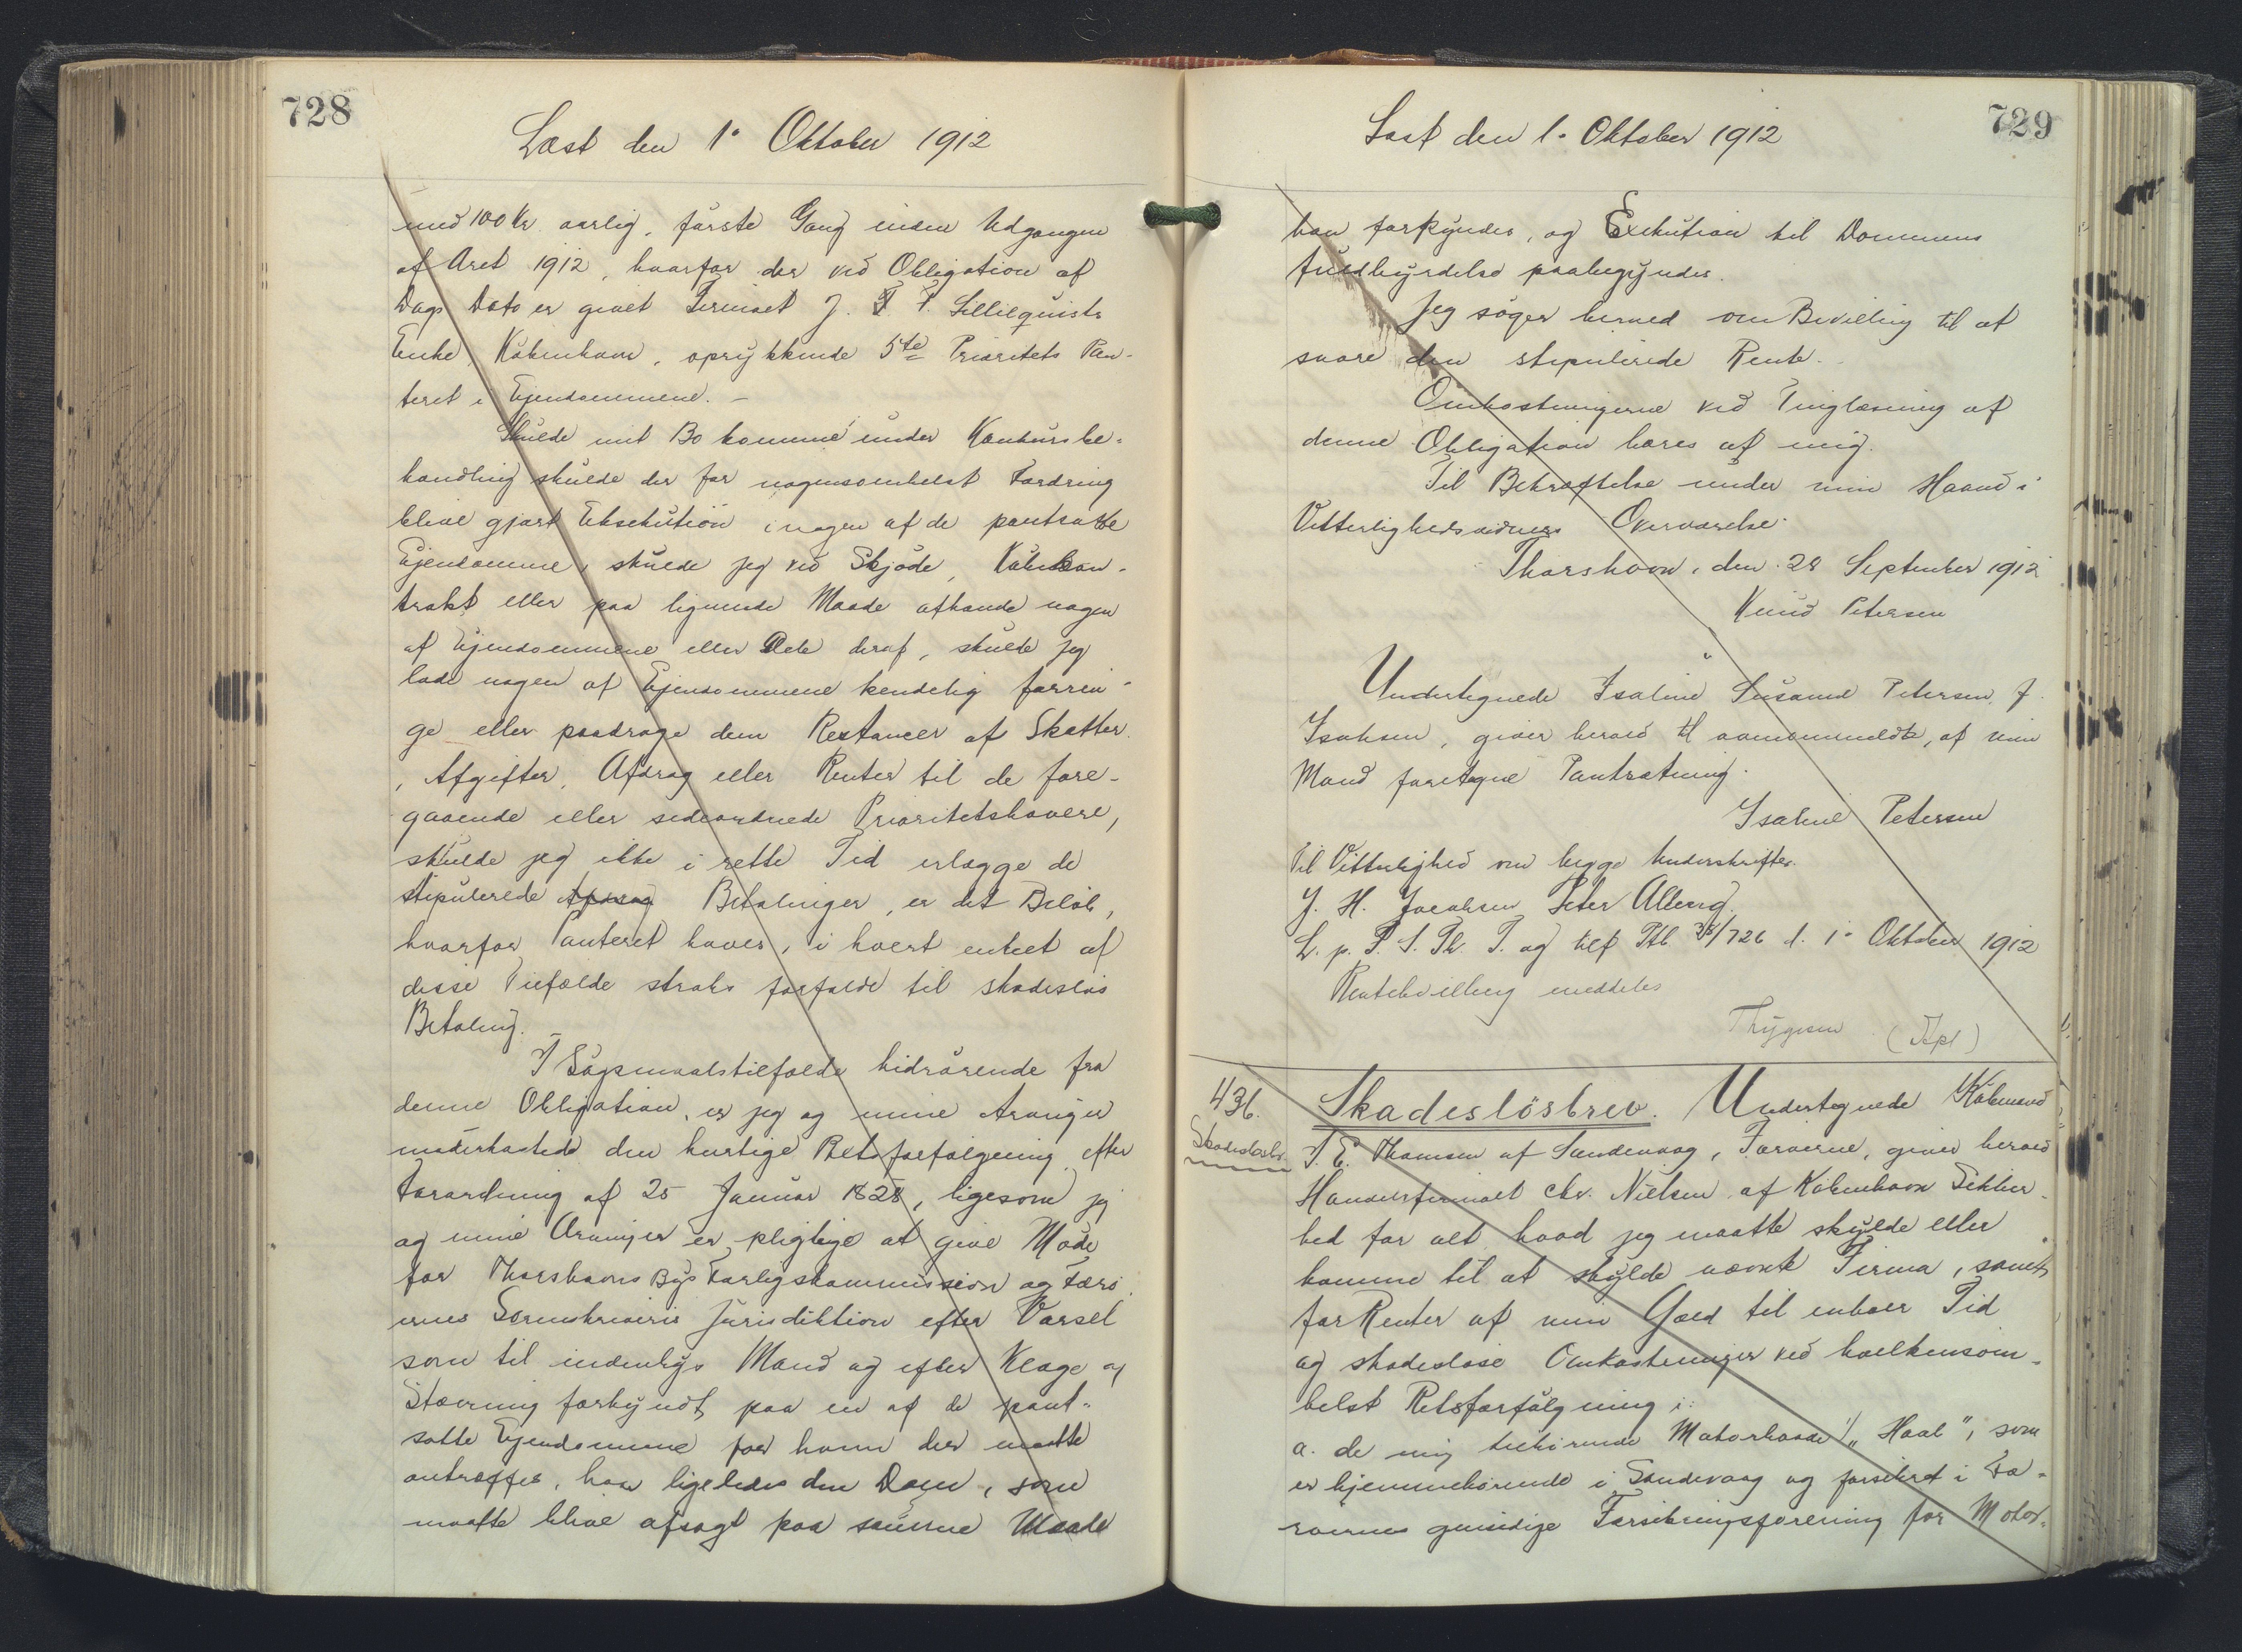 728
Læst den 1ᵉ Oktober 1912
med 100 Kr. aarlig, första Gang inden Udgangen
af Aret 1912, hvorfor der ved Obligation af
Dags Dato er givet Firmaet J. F. F. Lillilquists
Enke, København, oprykkende 5te Prioritets Pan-
teret i Ejendommene. -
Skulde mit Bo komme under Konkursbe-
handling, skulde der for nogensomhelst Fordring
blive gjort Eksekution i nogen af de pantsatte
Ejendomme, skulde jeg ved Skjøde, Købekon-
trakt eller paa lignende Maade afhænde nogen
af Ejendommene eller Dele deraf, skulde jeg
lade nogen af Ejendommene kendelig forrin-
ge eller paadrage dem Restancer af Skatter
, Afgifter, Afdrag eller Renter til de fore-
gaaende eller sideordnede Prioritetshavere,
skulde jeg ikke i rette Tid erlægge de
stipulerede Afdrag Betalinger, er det Beløb,
hvorfor Panteret haves, i hvert enkelt af
disse Tilfælde straks forfalden til skadesløs
Betaling.
I Søgsmaalstilfælde hidrørende fra
denne Obligation, er jeg og mine Arvinger
underkastede den hurtige Retsforfølgning efter
Forordning af 25 Januar 1828, ligesom jeg
og mine Arvinger er pligtige at give Møde
for Thorshavns Bys Forligskommission og Færø
ernes Sorenskriveris Jurisdiktion efter Varsel
som til indenbys Mand og efter Klage og
Stævning forkyndt paa en af de pant-
satte Ejendomme for hvem der maatte
antræffes, hvor ligeledes den Dom, som
maatte blive afsagt paa samme Maade
729
Læst den 1. Oktober 1912
kan forkyndes, og Exekution til Dommens
fuldbyrdelse paabegyndes.
Jeg søger herved om Bevilling til at
svare den stipulerede Rente.
Omkostningerne ved Tinglæsning af
denne Obligation bæres af mig.
Til Bekræftelse under min Haand i
Vitterlighedsvidners Overværelse.
Thorshavn, den 28 September 1912
Knud Petersen
Undertegnede Isaline Susanne Petersen, f.
Isaksen, giver herved til ovenanmeldte, af min
Mand foretagne Pantsætning.
Isaline Petersen
Til Vitterlighed om begge Underskrifter.
J. H. Jacobsen Peter Alberg.
L. p. S. Th. T. og tilf Ptb. /726 d. 1ᵉ Oktober 1912
Rentebevilling meddeles
Thygesen (Kpt)
436.
Skadesløsbr.
Skadesløsbrev. Undertegnede Købmand
T. E. Thomsen af Sandevaag, Færøerne, giver herved
Handelsfirmaet Chr. Nielsen af København Sikker-
hed for alt hvad jeg maatte skylde eller
komme til at skylde nævnte Firma, samt
for Renter af min Gæld til enhver Tid
og skadesløse Omkostninger ved hvilkensom-
helst Retsforfølgning i:
a. de mig tilhørende Motorbaade 1/ „Haab", som
er hjemmehørende i Sandevaag og forsikret i Fæ-
røernes gensidige Forsikringsforening for Motor-